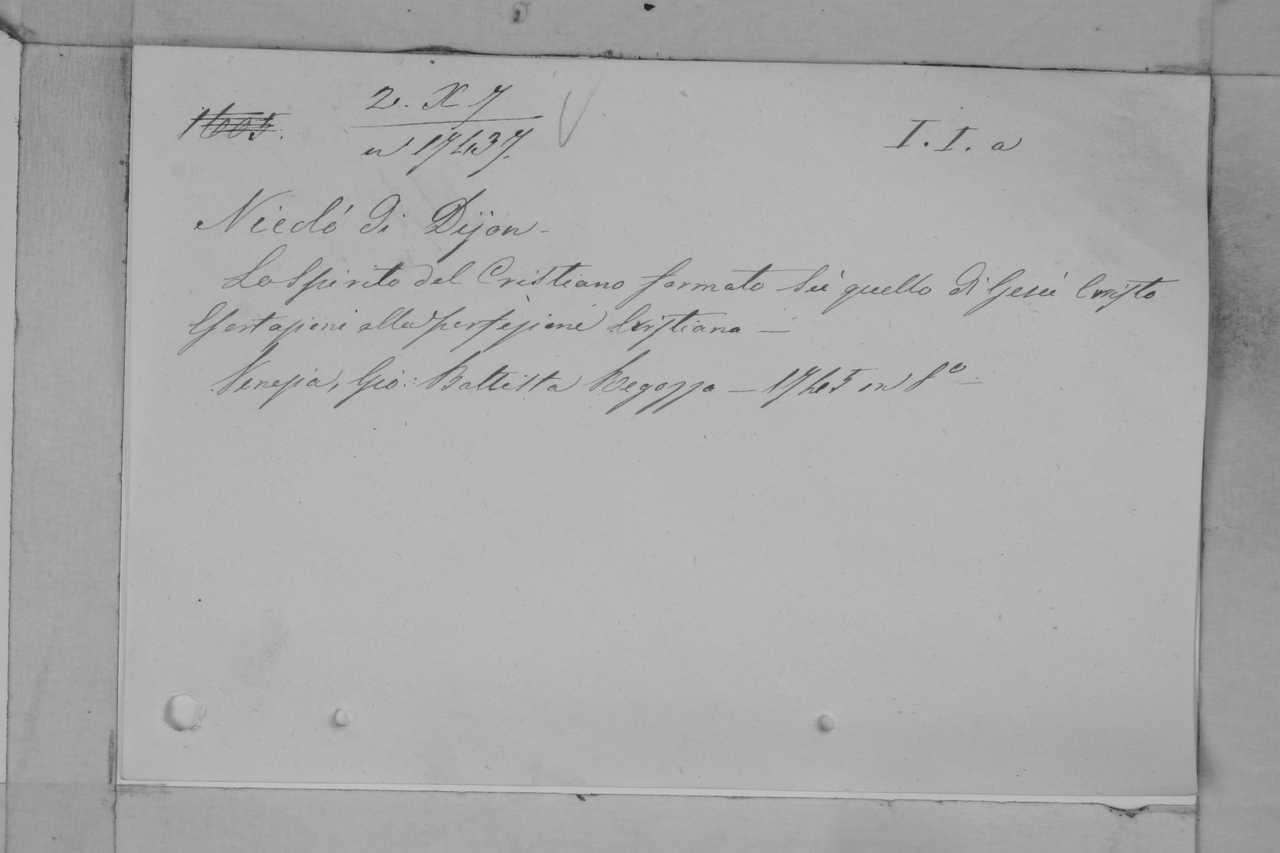 1605. 2. X 7 I. I. a
n 17437.
Nicoló di Dijon -
Lo Spirito del Cristiano formato sù quello di Gesù Cristo
Esortazioni alla perfezione Cristiana —
Venezia, Gio: Battista Regozza — 1745 in 8º